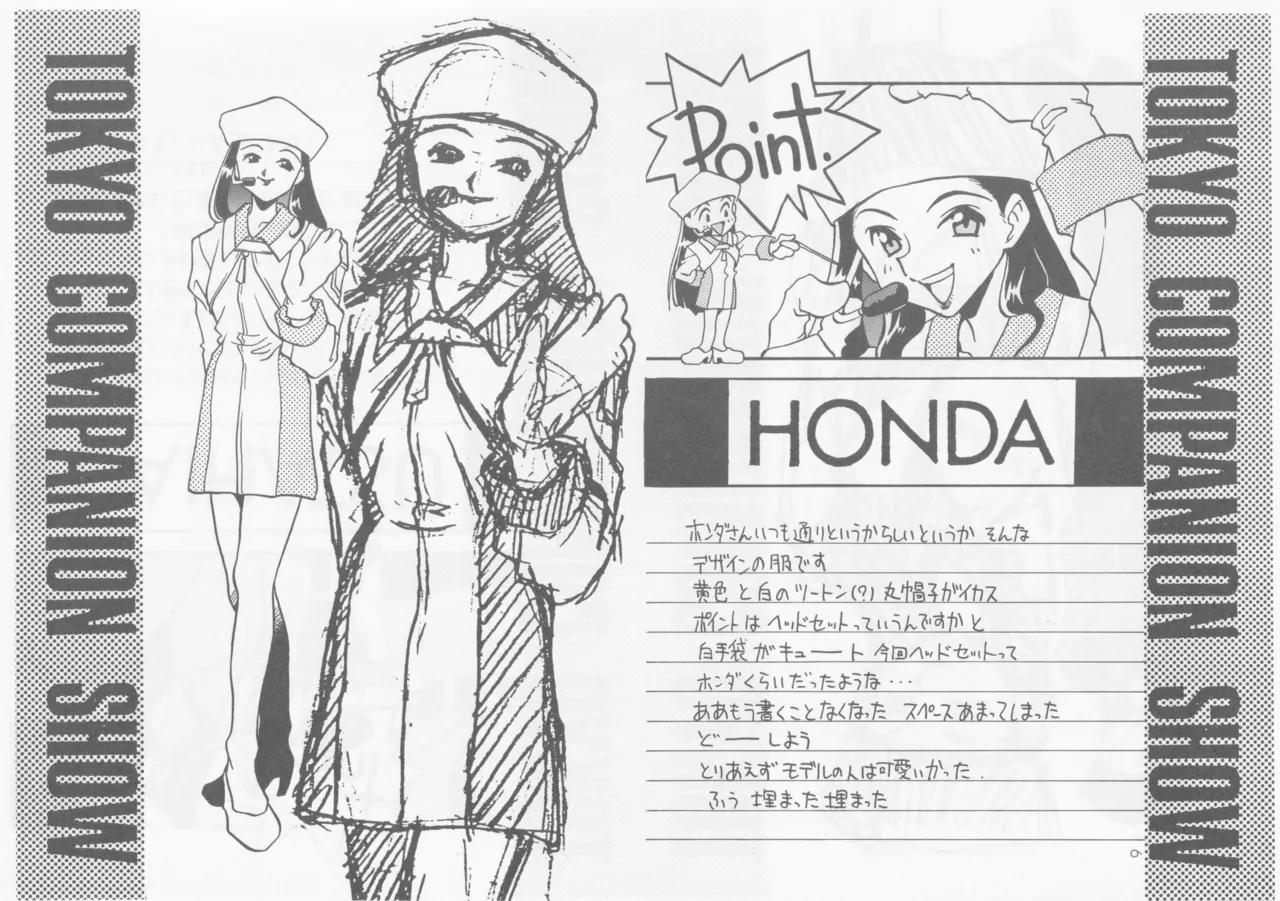 TOKYO COMPANION SHOW
Point.
HONDA
ホンダさんいつも通りというからしいというか そんな
デザインの服です
黄色 と 白の ツートン(?) 丸帽子がイカス
ポイント は ヘッドセットっていうんですか と
白手袋 が キュート 今回ヘッドセットって
ホンダくらいだったような…
ああもう書くことなくなった スペースあまってしまった
どーしよう
とりあえず モデルの人は可愛いかった.
ふう 埋まった 埋まった
9
TOKYO COMPANION SHOW